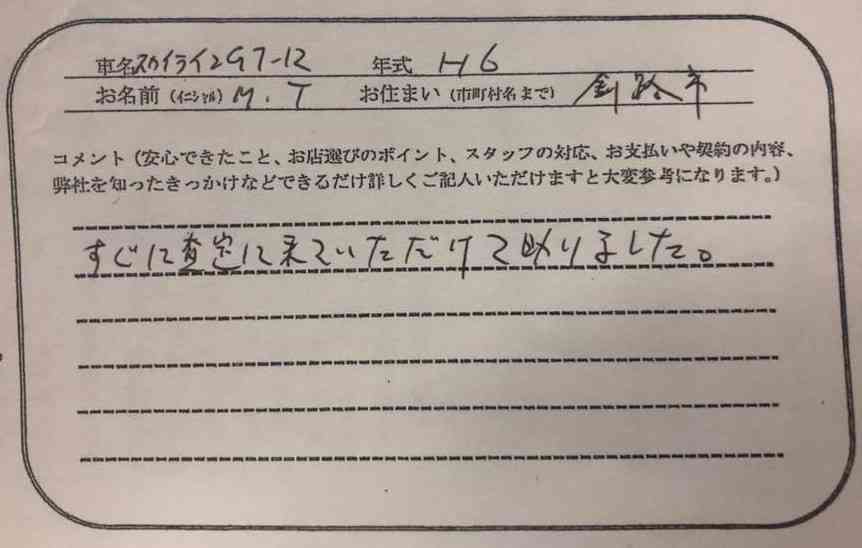 車名 スカイラインGT-R 年式 H6
お名前(イニシャル) M.T お住まい(市町村名まで) 釧路市
コメント(安心できたこと、お店選びのポイント、スタッフの対応、お支払いや契約の内容、
弊社を知ったきっかけなどできるだけ詳しくご記入いただけますと大変参考になります。)
すぐに査定に来ていただけて助りました。